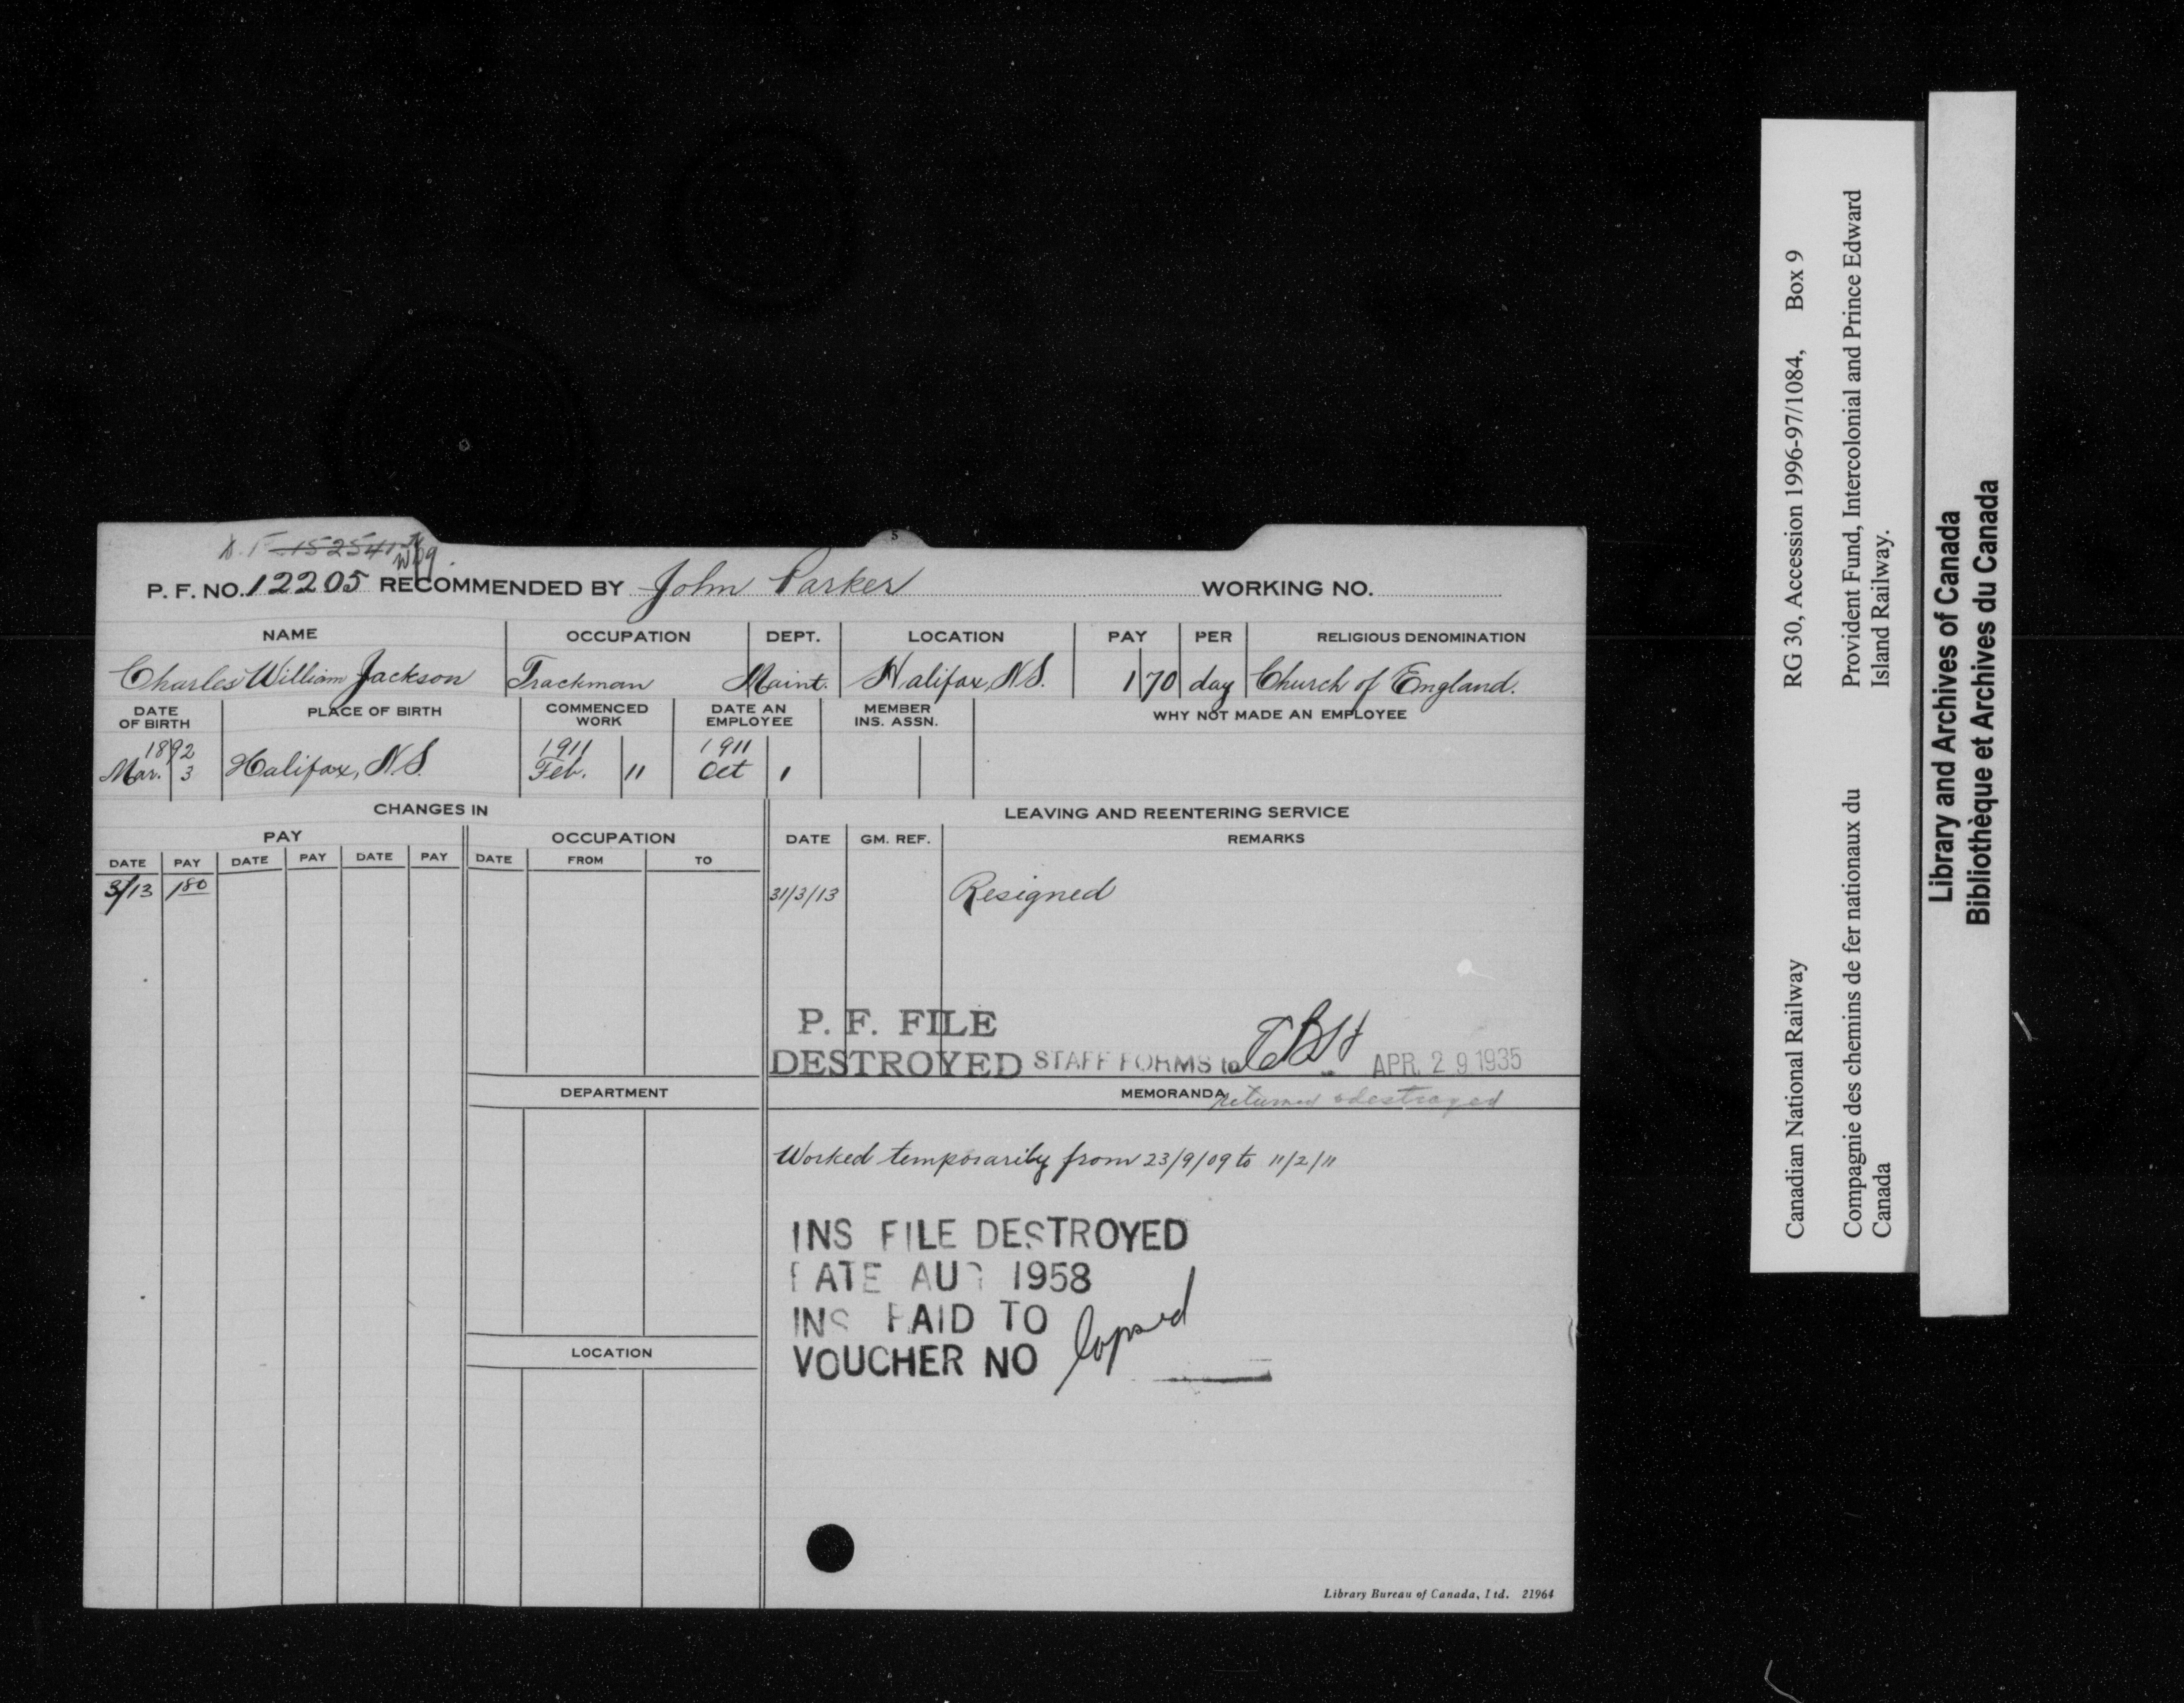 P. F. 152541
Wpg.
P. F. NO. 12205 RECOMMENDED BY John Parker WORKING NO.
NAME OCCUPATION DEPT. LOCATION PAY PER RELIGIOUS DENOMINATION
Charles William Jackson Trackman Maint. Halifax, N.S. 1 70 day Church of England.
DATE OF BIRTH PLACE OF BIRTH COMMENCED WORK DATE AN EMPLOYEE MEMBER INS. ASSN. WHY NOT MADE AN EMPLOYEE
1892 1911 1911
Mar. 3 Halifax, N.S. Feb. 11 Oct 1
CHANGES IN LEAVING AND REENTERING SERVICE
PAY OCCUPATION DATE GM. REF. REMARKS
DATE PAY DATE PAY DATE PAY DATE FROM TO
3/13 1 80 31/3/13 Resigned
P. F. FILE
DESTROYED STAFF FORMS to APR. 29 1935
DEPARTMENT MEMORANDA returned & destroyed
Worked temporarily from 23/9/09 to 11/2/11
INS FILE DESTROYED
DATE AUG 1958
INS PAID TO
VOUCHER NO lapsed
LOCATION
Library Bureau of Canada, Ltd. 21964
Canadian National Railway RG 30, Accession 1996-97/1084, Box 9
Compagnie des chemins de fer nationaux du Provident Fund, Intercolonial and Prince Edward
Canada Island Railway.
Library and Archives of Canada
Bibliothèque et Archives du Canada